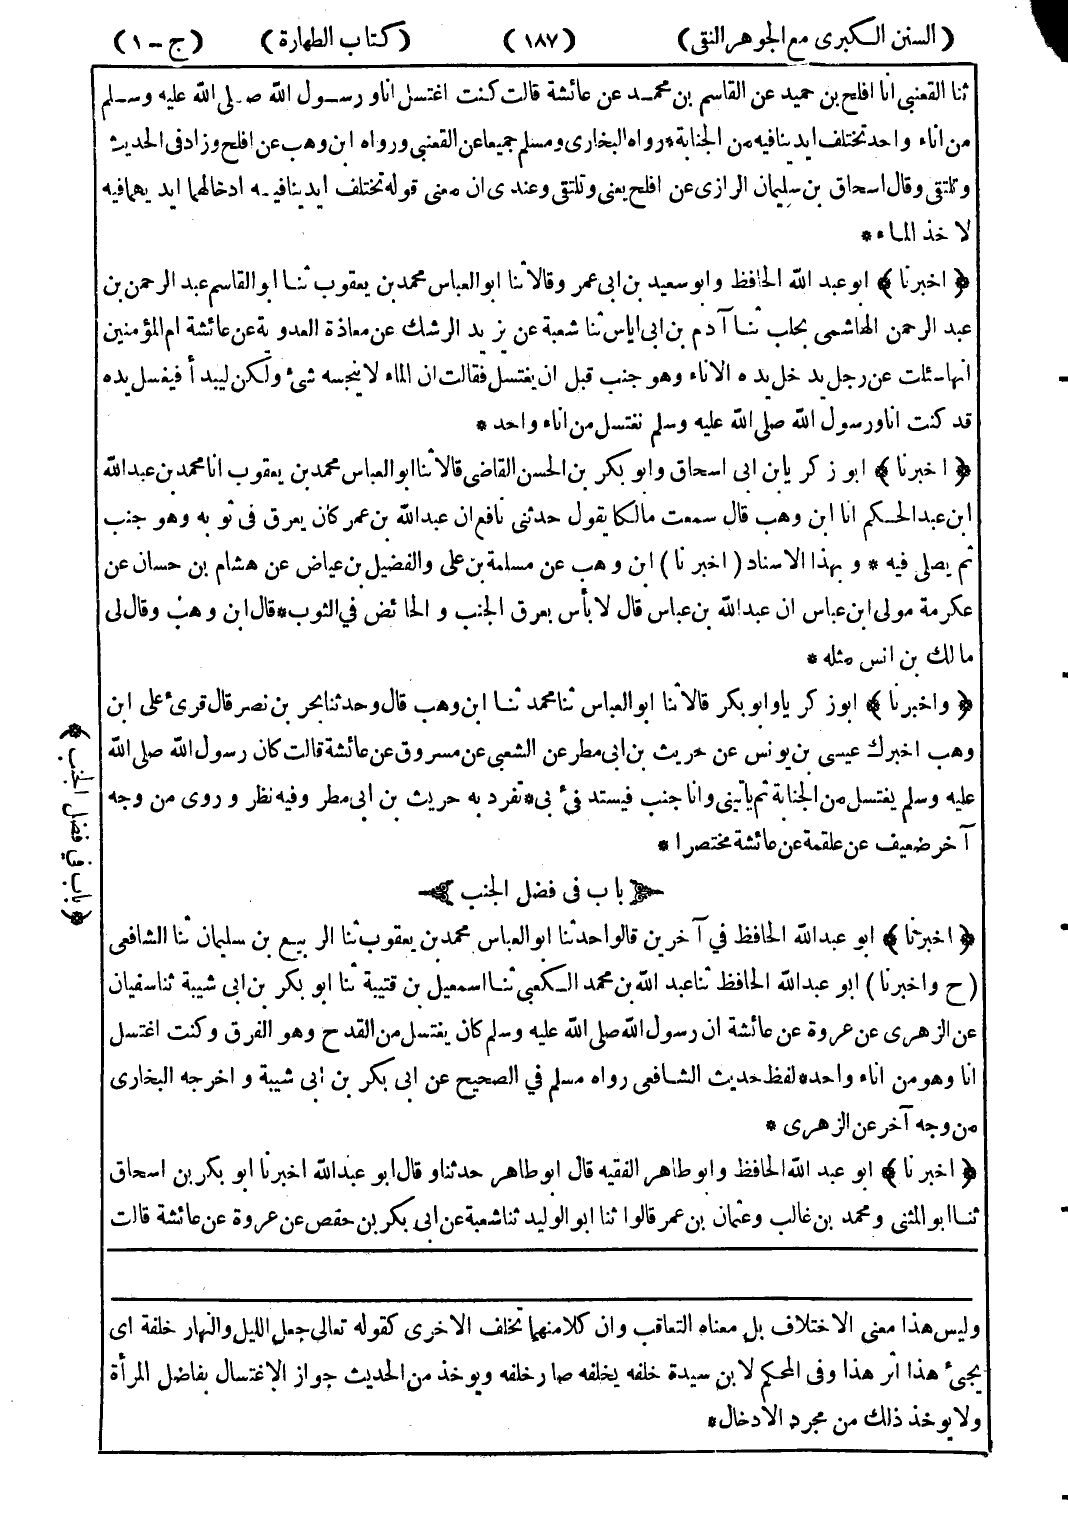 (السنن الكبرى مع الجوهر النقى) (١٨٧) (كتاب الطهارة) (ج-١)
ثنا القعنبى انا افلح بن حميد عن القاسم بن محمد عن عائشة قالت كنت اغتسل انا ورسول الله صلى الله عليه وسلم
من اناء واحد تختلف ايدينا فيه من الجنابة * رواه البخارى ومسلم جميعا عن القعنبى ورواه ابن وهب عن افلح وزاد فى الحديث
وتلتقى وقال اسحاق بن سليمان الرازى عن افلح يعنى وتلتقى وعندى ان معنى قوله تختلف ايدينا فيه ادخالهما ايديهما فيه
لاخذ الماء *
﴿اخبرنا﴾ ابو عبد الله الحافظ وابو سعيد بن ابى عمر وقالا ثنا ابو العباس محمد بن يعقوب ثنا ابو القاسم عبد الرحمن بن
عبد الرحمن الهاشمى بحلب ثنا آدم بن ابى اياس ثنا شعبة عن يزيد الرشك عن معاذة العدوية عن عائشة ام المؤمنين
انها سئلت عن رجل يدخل يده الاناء وهو جنب قبل ان يغتسل فقالت ان الماء لا ينجسه شئ ولكن ليبدأ فيغسل يده
قد كنت انا ورسول الله صلى الله عليه وسلم نغتسل من اناء واحد *
﴿اخبرنا﴾ ابو زكريا بن ابى اسحاق وابو بكر بن الحسن القاضى قالا ثنا ابو العباس محمد بن يعقوب انا محمد بن عبد الله
ابن عبد الحكم انا ابن وهب قال سمعت مالكا يقول حدثنى نافع ان عبد الله بن عمر كان يعرق فى ثوبه وهو جنب
ثم يصلى فيه * وبهذا الاسناد (اخبرنا) ابن وهب عن مسلمة بن على والفضيل بن عياض عن هشام بن حسان عن
عكرمة مولى ابن عباس ان عبد الله بن عباس قال لا بأس بعرق الجنب والحائض في الثوب * قال ابن وهب وقال لى
مالك بن انس مثله *
﴿واخبرنا﴾ ابو زكريا وابو بكر قالا ثنا ابو العباس ثنا محمد ثنا ابن وهب قال وحدثنا بحر بن نصر قال قرئ على ابن
وهب اخبرك عيسى بن يونس عن حريث بن ابى مطر عن الشعبى عن مسروق عن عائشة قالت كان رسول الله صلى الله
عليه وسلم يغتسل من الجنابة ثم يأتينى وانا جنب فيستدفئ بى * تفرد به حريث بن ابى مطر وفيه نظر وروى من وجه
آخر ضعيف عن علقمة عن عائشة مختصرا *
باب فى فضل الجنب
﴿باب في فضل الجنب﴾
﴿اخبرنا﴾ ابو عبد الله الحافظ في آخرين قالوا حدثنا ابو العباس محمد بن يعقوب ثنا الربيع بن سليمان ثنا الشافعى
(ح واخبرنا) ابو عبد الله الحافظ ثنا عبد الله بن محمد الكعبى ثنا اسمعيل بن قتيبة ثنا ابو بكر بن ابى شيبة ثنا سفيان
عن الزهرى عن عروة عن عائشة ان رسول الله صلى الله عليه وسلم كان يغتسل من القدح وهو الفرق وكنت اغتسل
انا وهو من اناء واحد * لفظ حديث الشافعى رواه مسلم في الصحيح عن ابى بكر بن ابى شيبة و اخرجه البخارى
من وجه آخر عن الزهرى *
﴿اخبرنا﴾ ابو عبد الله الحافظ وابو طاهر الفقيه قال ابو طاهر حدثنا وقال ابو عبد الله اخبرنا ابو بكر بن اسحاق
ثنا ابو المثنى ومحمد بن غالب وعثمان بن عمر قالوا ثنا ابو الوليد ثنا شعبة عن ابى بكر بن حفص عن عروة عن عائشة قالت
وليس هذا معنى الاختلاف بل معناه التعاقب وان كلا منهما تخلف الاخرى كقوله تعالى جعل الليل والنهار خلفة اى
يجئ هذا اثر هذا وفى المحكم لابن سيدة خلفه يخلفه صار خلفه ويوخذ من الحديث جواز الاغتسال بفاضل المرأة
ولا يوخذ ذلك من مجرد الادخال *